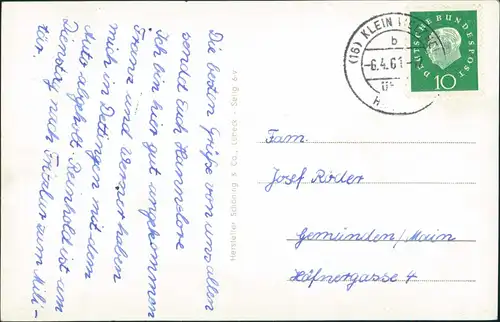 Die besten Grüße von uns allen
sendet Euch Hannelore
Ich bin hier gut angekommen
Franz und Werner haben
mich in Dettingen mit dem
Auto abgeholt. Reinhold ist am
Dienstag nach Fritzlar zum Mili-
tär.
Hersteller Schöning & Co., Lübeck - Selig
(16) KLEIN
b
-6.4.61-
DEUTSCHE BUNDESPOST
10
Fam.
Josef Röder
Gemünden/Main
Häfnergasse 4